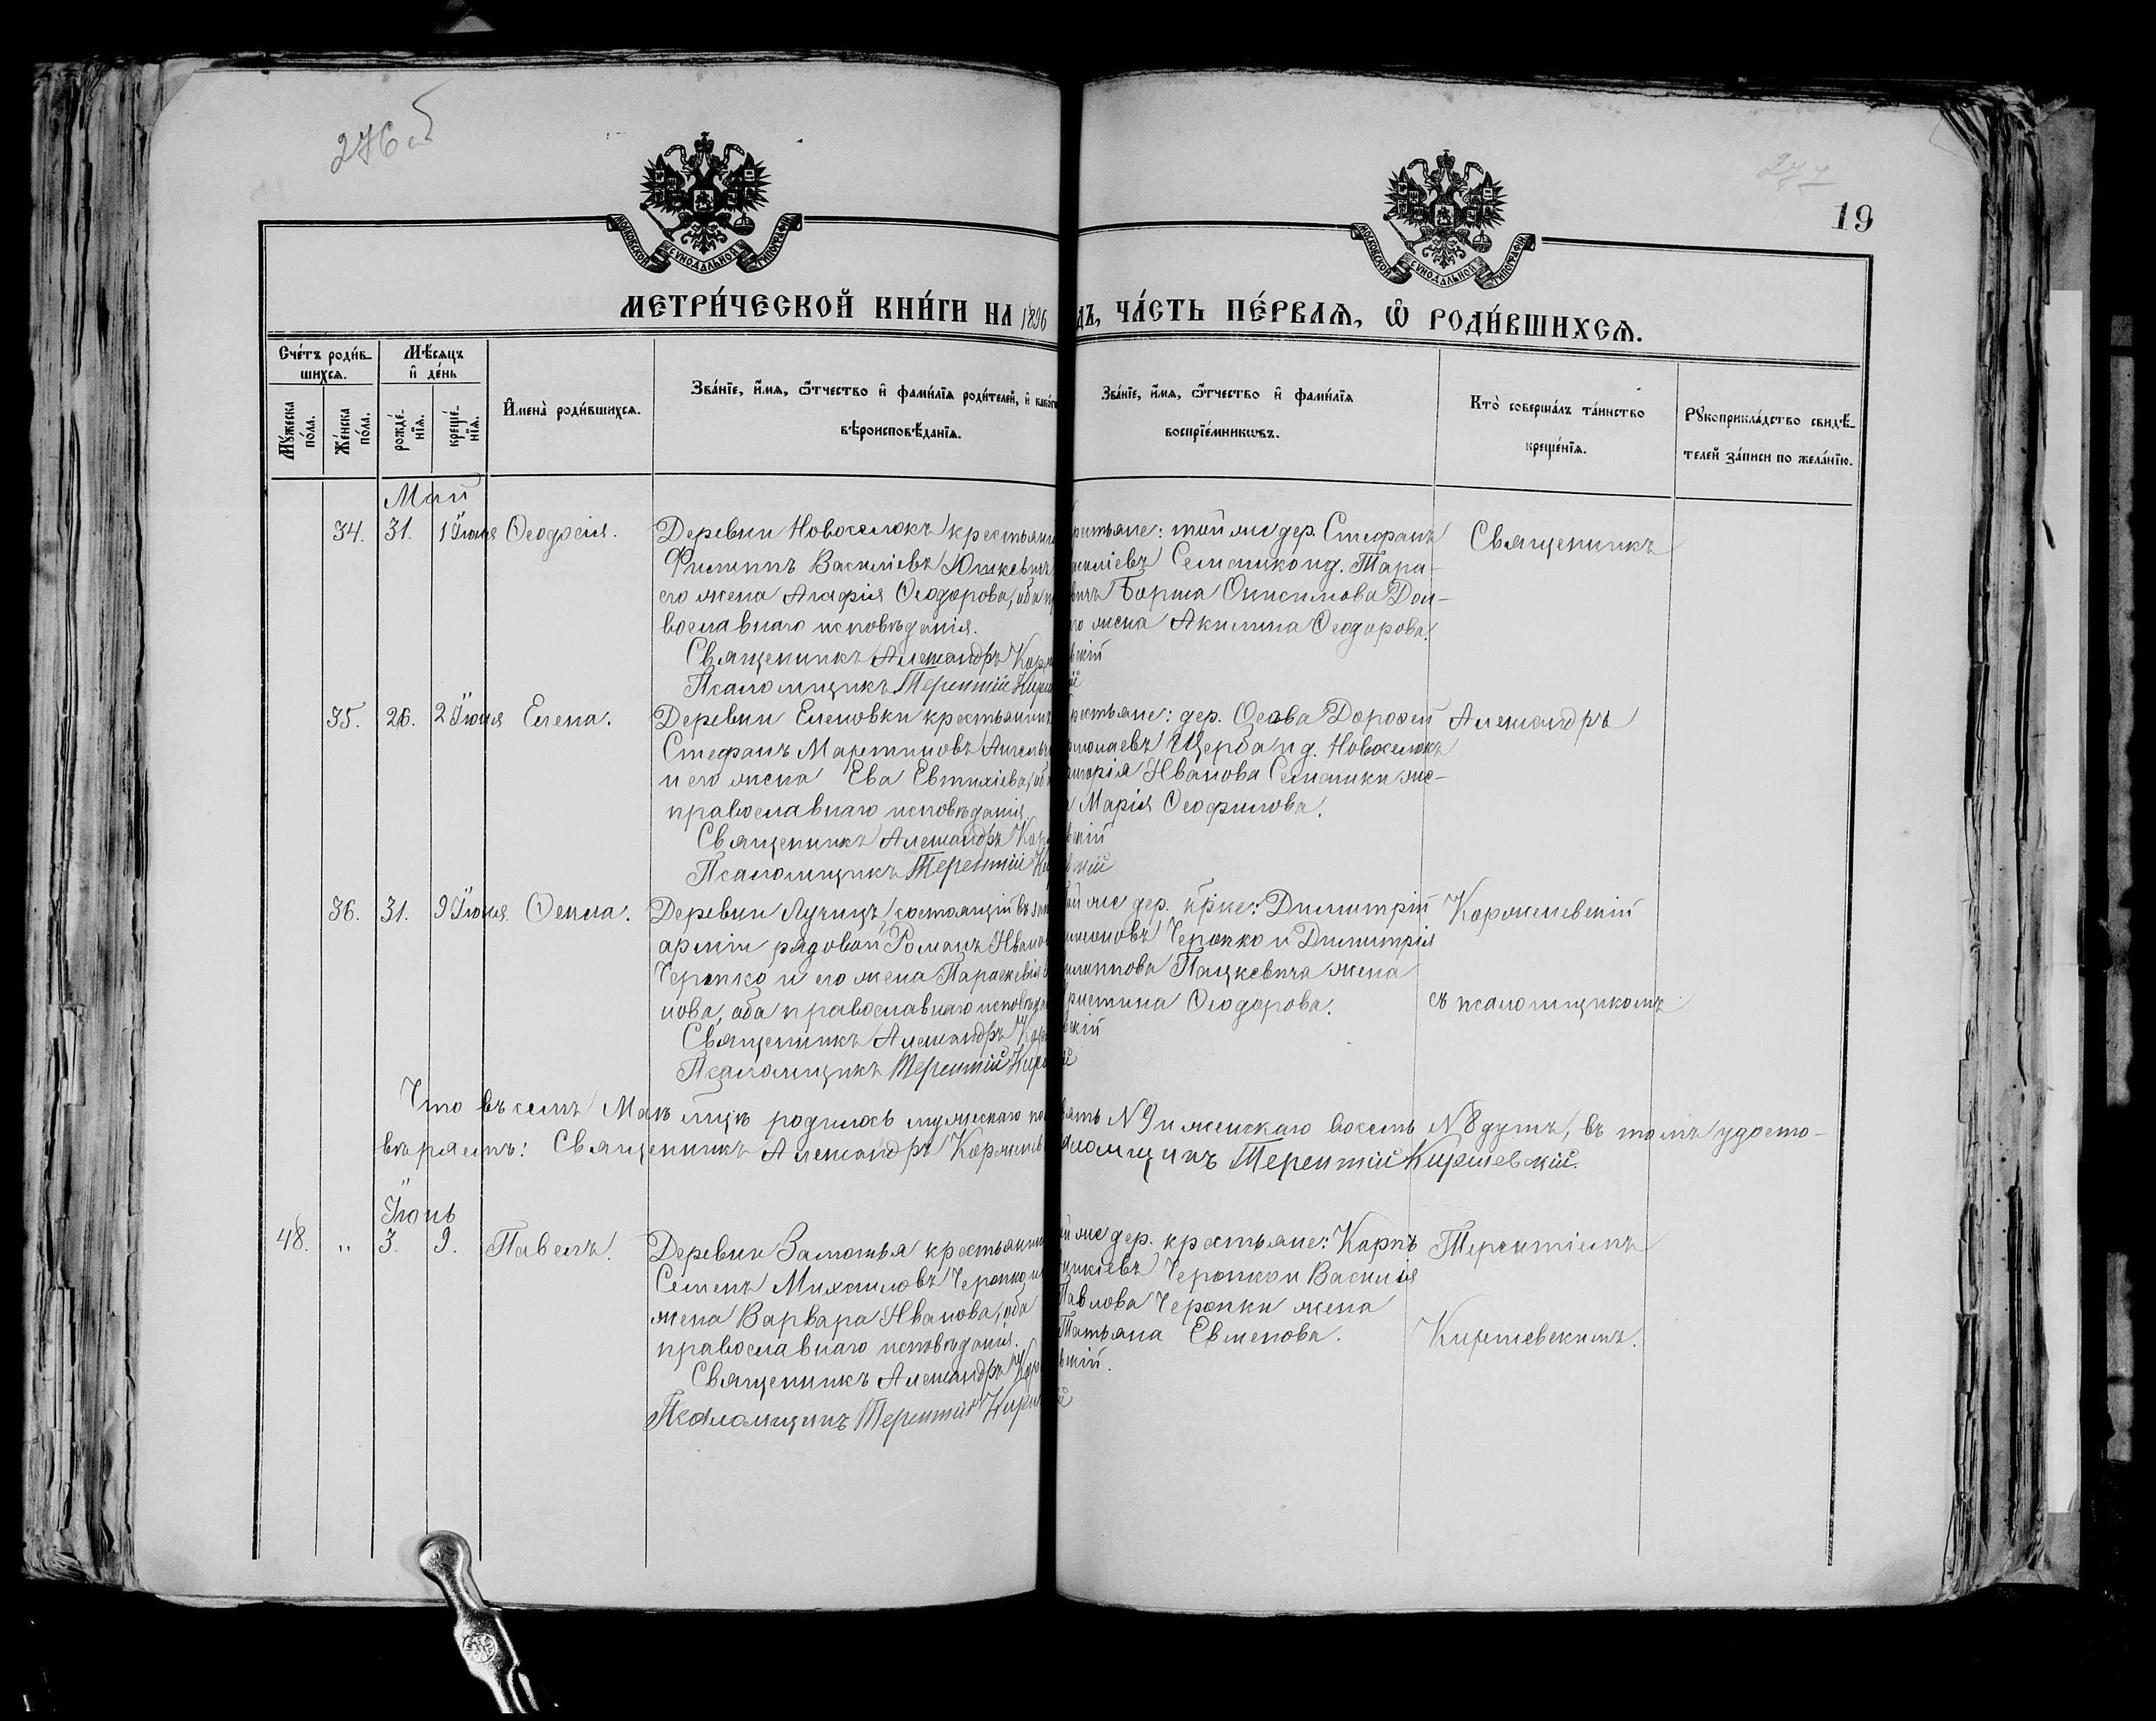 276 об
277
19
МОСКОВСКОЙ СУНОДАЛЬНОЙ ТИПОГРАФІИ
МОСКОВСКОЙ СУНОДАЛЬНОЙ ТИПОГРАФІИ
МЕТРИ́ЧЕСКОЙ КНИ́ГИ НА 1896
ДЪ, ЧА́СТЬ ПЕ́РВАѦ, Ѡ҆ РОДИ́ВШИХСѦ.
Сче́тъ роди́в-
шихсѧ.
Мꙋ́жеска
по́ла.
Же́нска
по́ла.
Мѣ́сѧцъ
и҆ де́нь
рожде́-
нїѧ.
креще́-
нїѧ.
И҆мена̀ роди́вшихсѧ.
Зва́нїе, и҆́мѧ, ѻ҆́тчество и҆ фами́лїѧ роди́телей, и҆ како́гѡ
вѣроисповѣ́данїѧ.
Зва́нїе, и҆́мѧ, ѻ҆́тчество и҆ фами́лїѧ
воспрїе́мникѡвъ.
Кто̀ соверша́лъ та́инство
креще́нїѧ.
Рꙋкоприкла́дство свидѣ́-
телей за́писи по жела́нїю.
Май
34. 31. 1 Іюня Ѳеодосія.
Деревни Новоселокъ крестьяни
Филиппъ Василіевъ Юшкевичъ
его жена Агафія Ѳеодорова, оба пр
вославнаго исповѣданія.
Священникъ Александръ Корж
Псаломщикъ Терентій Кирш
рестьяне: той же дер. Стефанъ
асиліевъ Семашко и д. Тара-
Онисимова
жена Акилина Ѳеодорова.
скій
ій
Священникъ
35. 26. 2 Іюня Елена.
Деревни Еленовки крестьянинъ
Стефанъ Мартиновъ
и его жена Ева Евтихіева, оба
православнаго исповѣданія.
Священникъ Александръ Кор
Псаломщикъ Терентій Ки
рестьяне: дер. Осова Дорофей
Щерба и д. Новоселокъ
ригорія Иванова Семашки же-
а Марія Ѳеофилова.
скій
скій
Александръ
36. 31. 9 Іюня Ѳекла.
Деревни Лучицъ состоящій въ зап
арміи рядовой Романъ Ивано
Черопко и его жена Параскевія
нова, оба православнаго исповѣда
Священникъ Александръ Кор
Псаломщикъ Терентій Кирш
ой же дер. крꙵне: Димитрій
Черопко и Димитрія
илиппова Пацкевича жена
ристина Ѳеодорова.
скій
ій
Корженевскій
съ псаломщикомъ
Что въ семъ Маѣ мцѣ родилось мужескаго по
вять № 9 и женскаго восемь № 8 душъ, въ томъ удосто-
вѣряемъ: Священникъ Александръ Коржене
аломщикъ Терентій Киршевскій.
Іюнь
48. „ 3. 9. Павелъ.
Деревни Замостья крестьянин
Семенъ Михаиловъ Черопко и
жена Варвара Иванова, оба
православнаго исповѣданія.
Священникъ Александръ Кор
Псаломщикъ Терентій Кирш
ой же дер. крестьяне: Карпъ
Черопко и Василія
Павлова Черопки жена
Татьяна Евменова.
скій.
ій
Терентіемъ
Киршевскимъ.